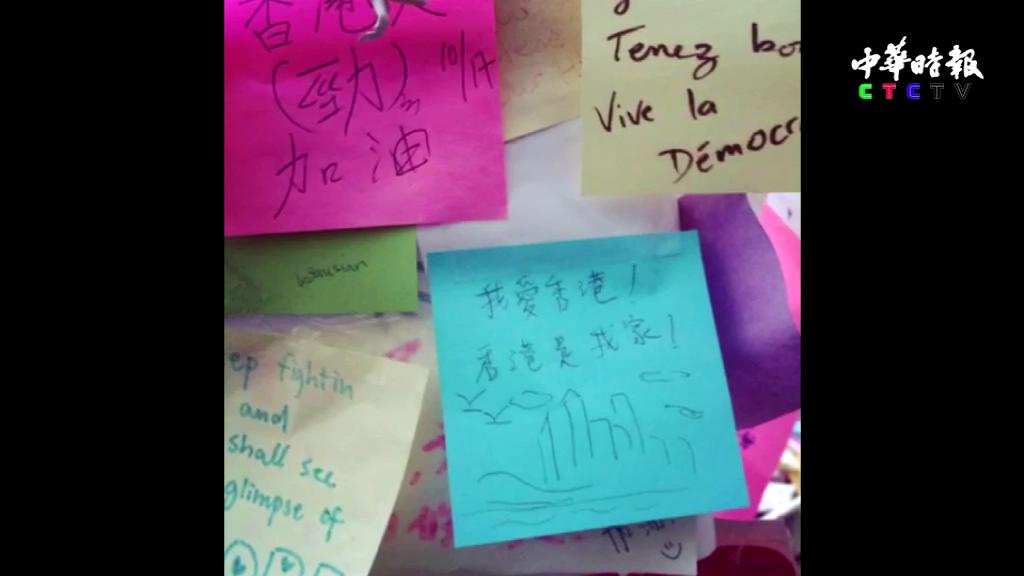 香港人
(勁)
10/17
加油
Tenez bo
Vive la
Démocr
中華時報
CTCTV
我愛香港！
香港是我家！
ep fightin
and
shall see
glimpse of
加油!